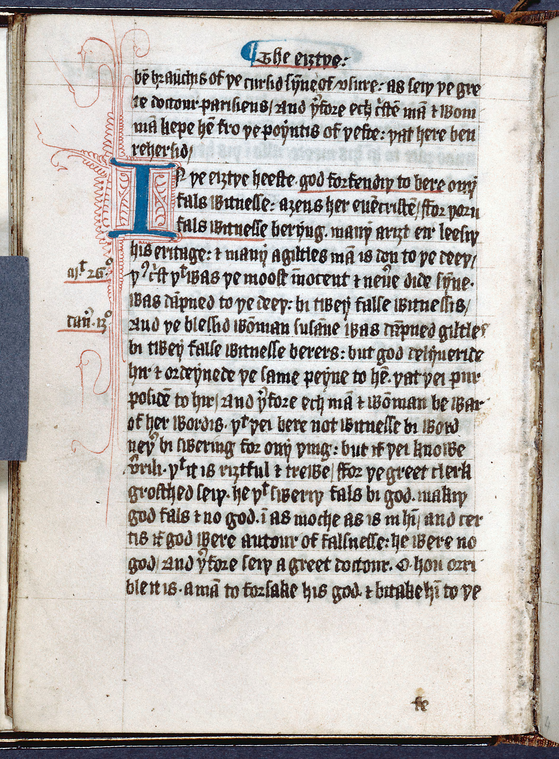 The eiȝtþe:
bē brauchis of þe cursid sȳne of vsure: as seiþ þe gre
te doctour parisiens/ And þᵉfore ech cͥstē mā ⁊ wom
man kepe hē fro þe poyntis of þefte: þat here ben
rehersid/
IN þe eiȝtþe heeste. god forfendiþ to bere ony
fals witnesse: aȝens her euēcriste/ ffor þoru
fals witnesse beryng. many ariȝt eir leesiþ
his eritage: ⁊ many a giltles mā is don to þe deeþ/
þᵗ was þe moost īnocent ⁊ neuͥe dide sȳne.
mͭ. 26.
was dāpned to þe deeþ: bi tweȳ false witnessis/
And þe blessid wōman susāne was dāpned giltles
daīͥ. 13°
bi tweȳ false witnesse berers: but god delyueride
hir ⁊ ordeynede þe same peyne to hē. þat þei pur
poside to hir/ And þᵉfore ech mā ⁊ wōman be war
of her wordis. þᵗ þei bere not witnesse bi word
neþͥ bi swering for ony þing: but if þei knowe
þᵗ it is riȝtful ⁊ trewe/ ffor þe greet clerk
grosthed seiþ. he þᵗ sweriþ fals bi god. makiþ
god fals ⁊ no god. ī as moche as is in hī/ and cer
tis if god were autour of falsnesse: he were no
god/ And þᵉfore seiþ a greet doctour. O hou orri
ble it is. a mā to forsake his god. ⁊ bitake hī to þe